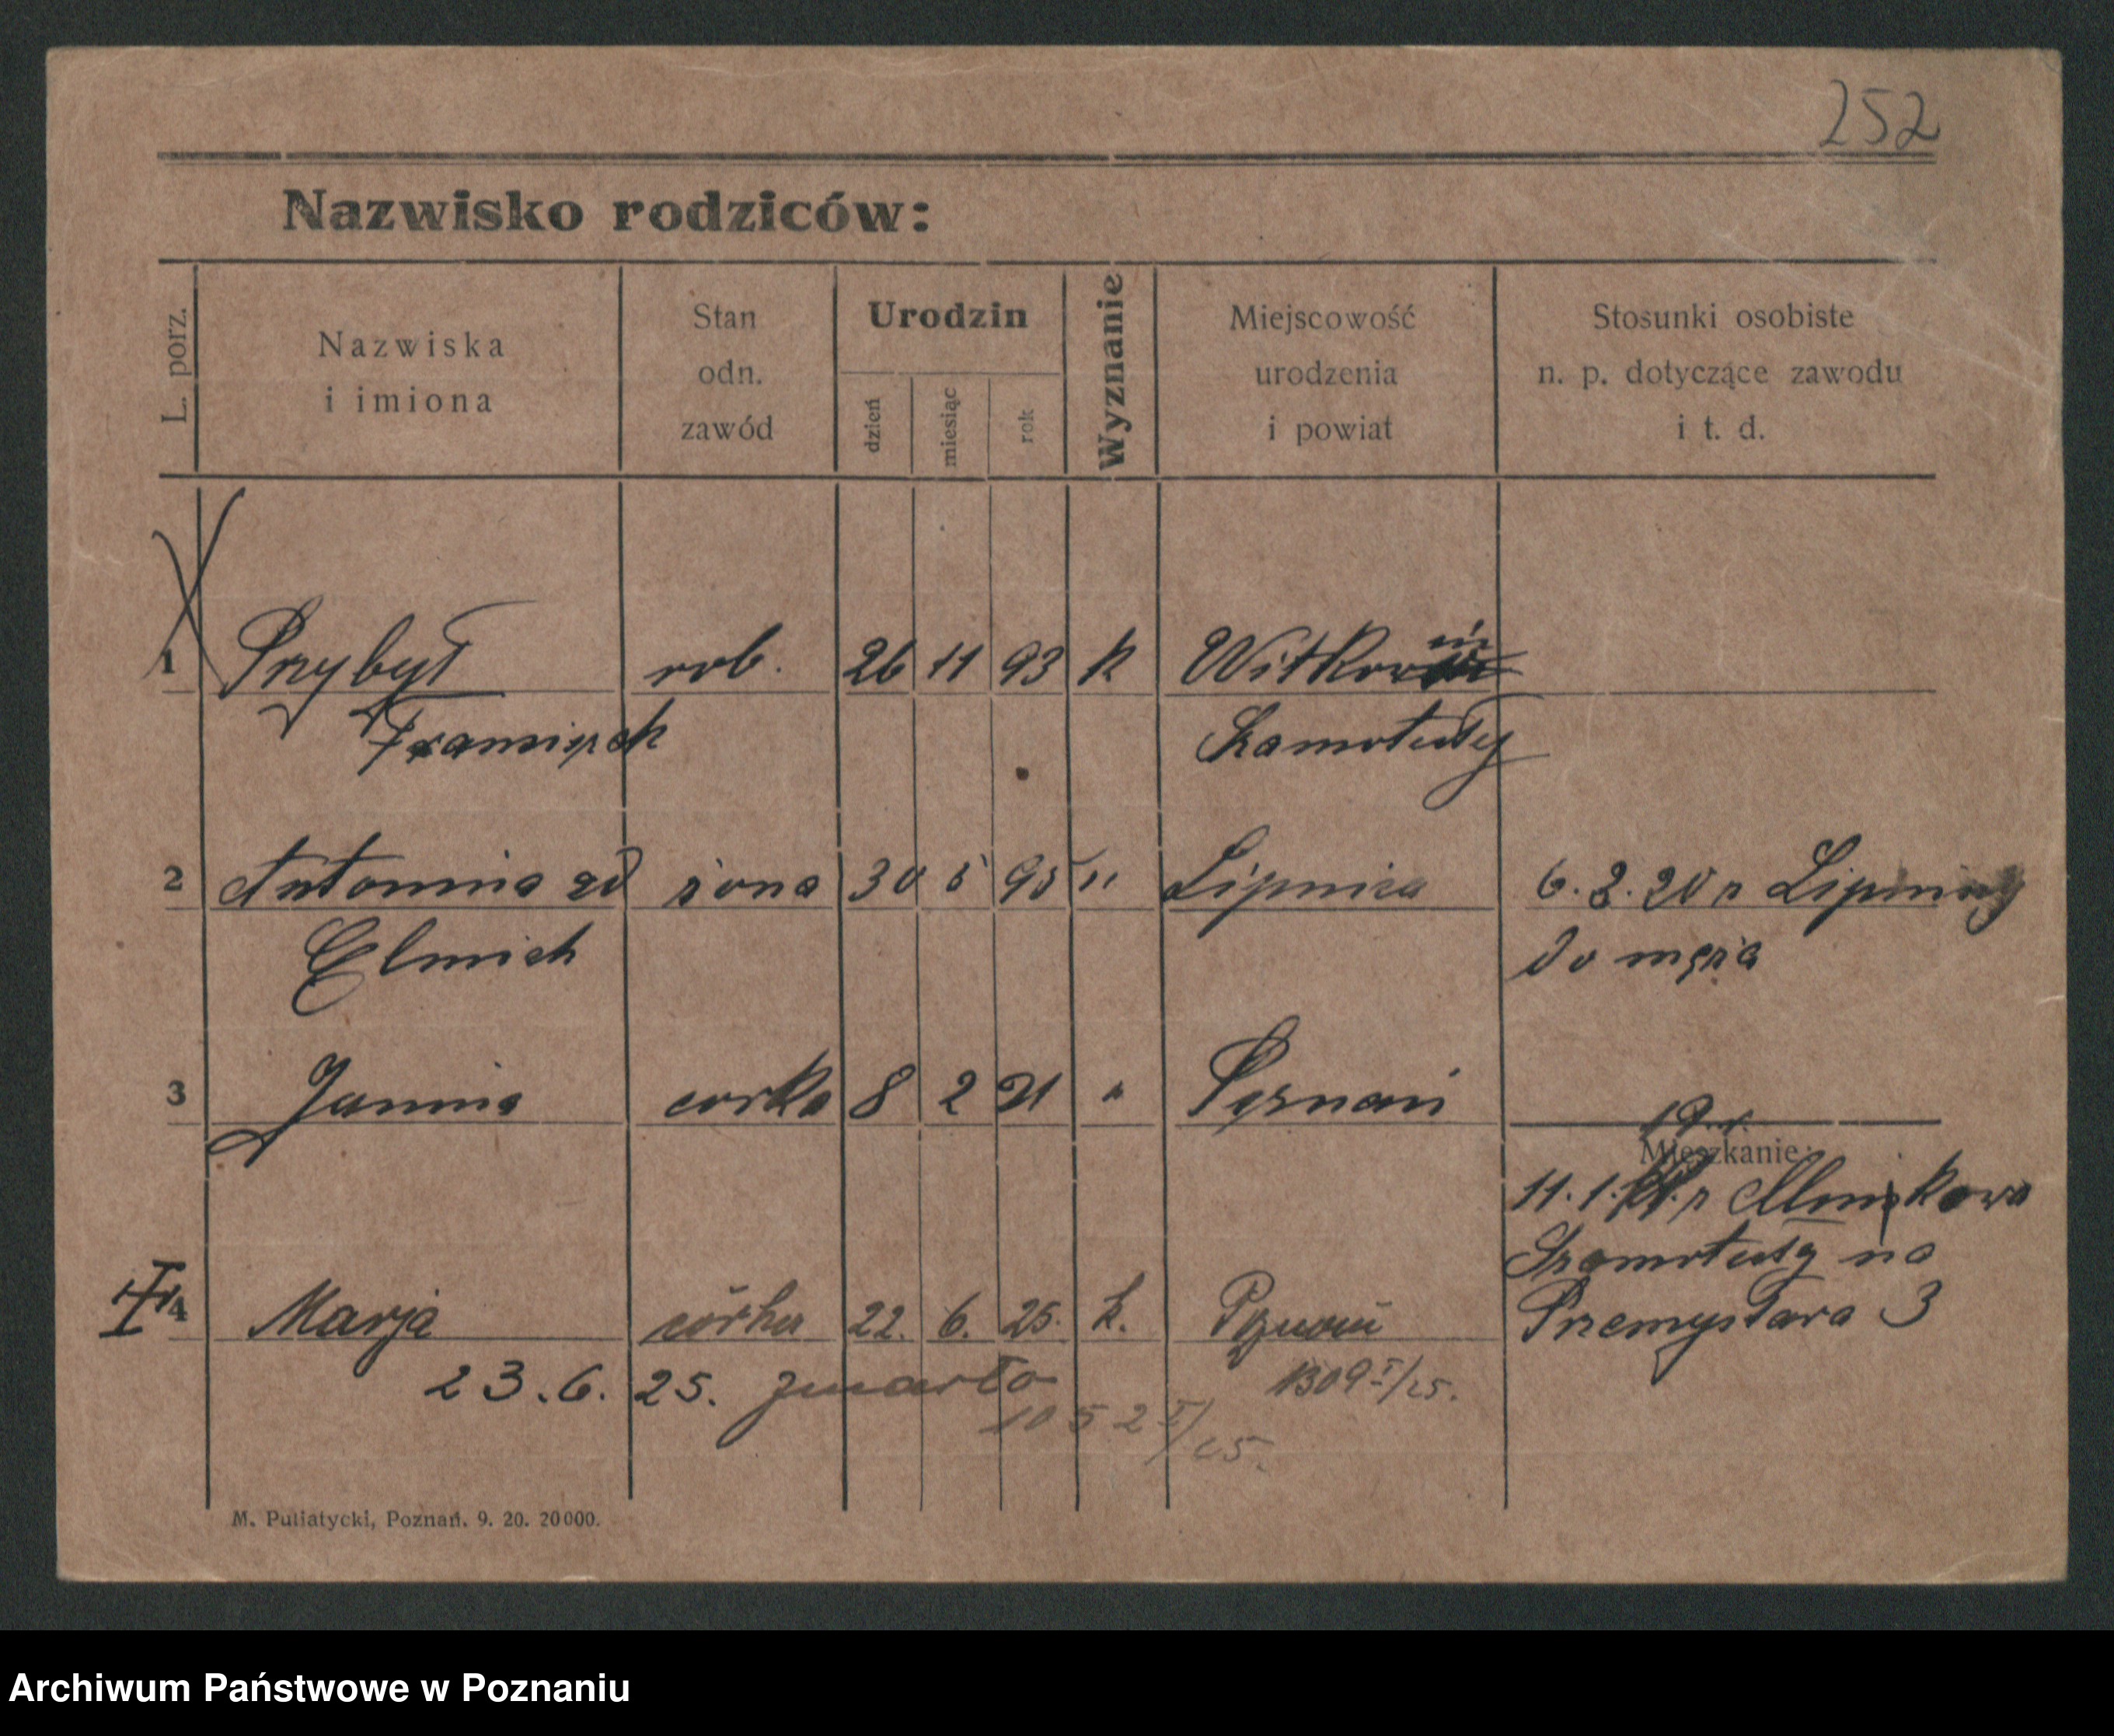 252
Nazwisko rodziców:
L. porz.
Nazwiska
i imiona
Stan
odn.
zawód
Urodzin
dzień
miesiąc
rok
Wyznanie
Miejscowość
urodzenia
i powiat
Stosunki osobiste
n. p. dotyczące zawodu
i t. d.
1 Przybył rob. 26 11 93 k Witkowin
Franciszek Szamotuły
2 Antonina zd żona 30 5 95 " Lipnica 6. 8. 20 z Lipnicy
Elmich do męża
3 Janina corka 8 2 21 " Poznań
19. r.
Mieszkanie:
11. 1. z
Szamotuły na
4 Marja córka 22. 6. 25. k. Poznań Przemysława 3
23. 6. 25. zmarło 1309 I/25.
1052 I/25.
M. Puliatycki, Poznań. 9. 20. 20000.
Archiwum Państwowe w Poznaniu